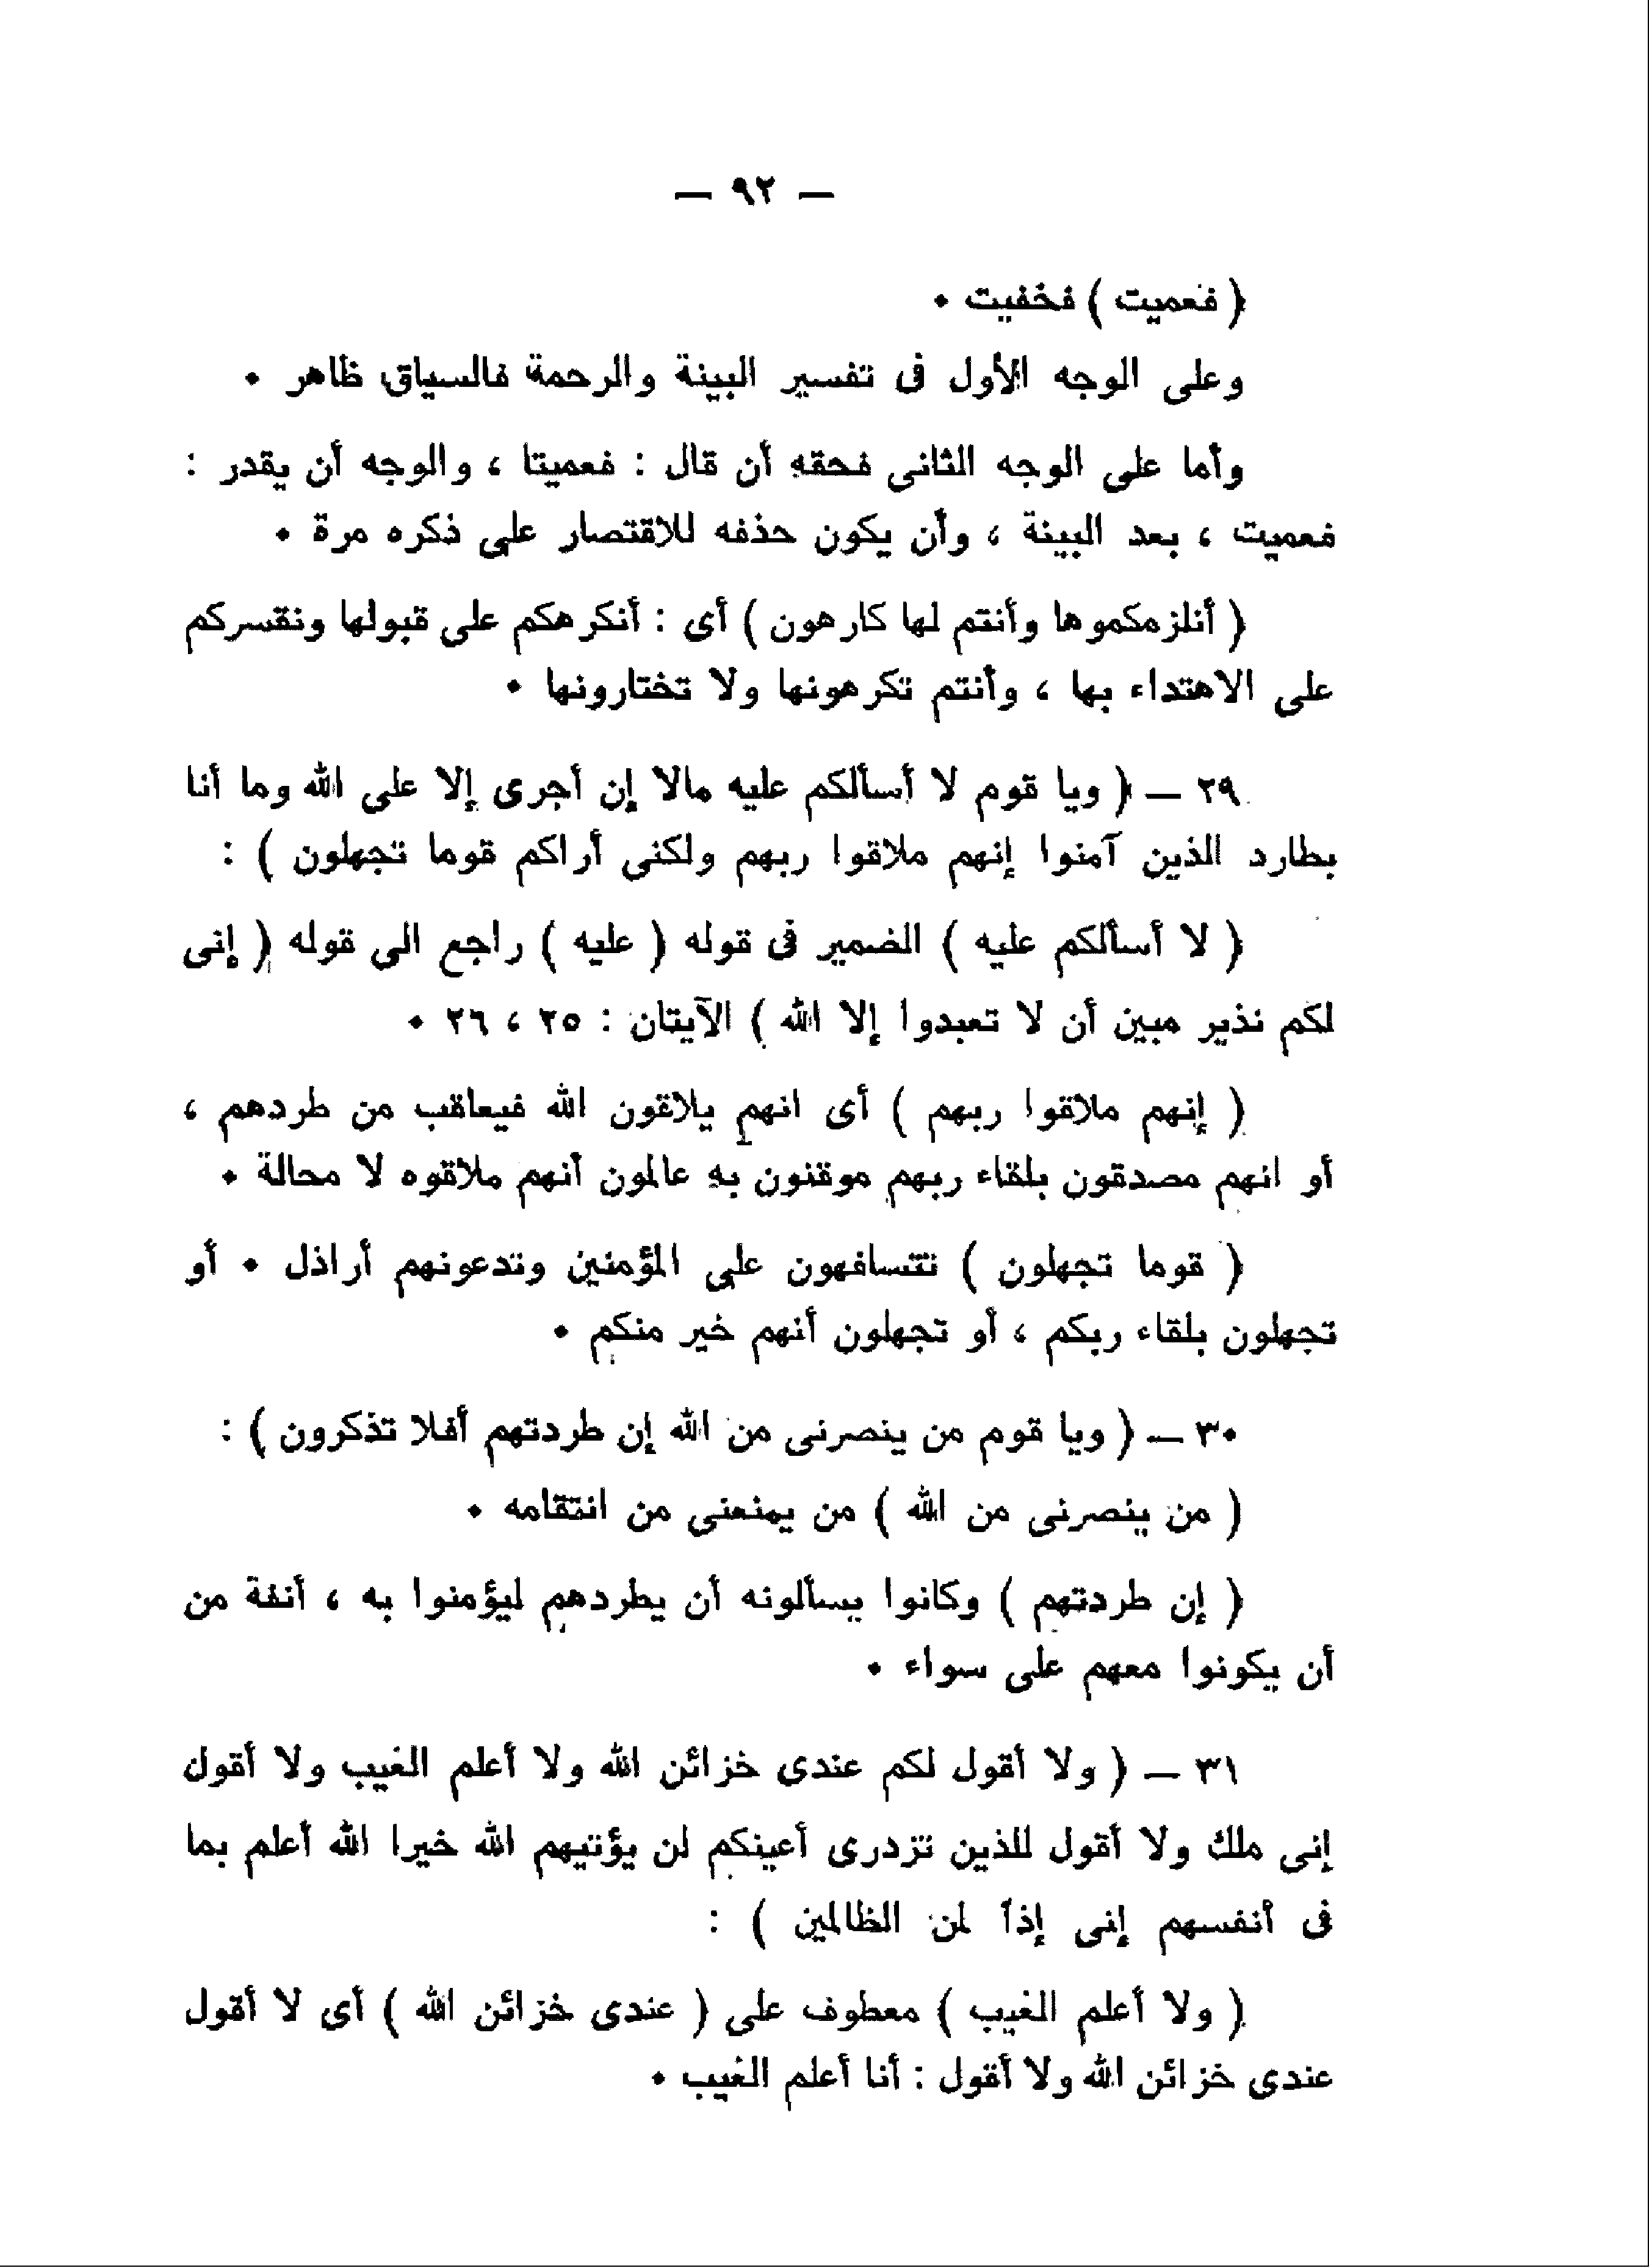 — ٩٢ —
( فعميت ) فخفيت .
وعلى الوجه الأول فى تفسير البينة والرحمة فالسياق ظاهر .
وأما على الوجه الثانى فحقه أن قال : فعميتا ، والوجه أن يقدر :
فعميت ، بعد البينة ، وأن يكون حذفه للاقتصار على ذكره مرة .
( أنلزمكموها وأنتم لها كارهون ) أى : أنكرهكم على قبولها ونقسركم
على الاهتداء بها ، وأنتم تكرهونها ولا تختارونها .
٢٩ — ( ويا قوم لا أسألكم عليه مالا إن أجرى إلا على الله وما أنا
بطارد الذين آمنوا إنهم ملاقوا ربهم ولكنى أراكم قوما تجهلون ) :
( لا أسألكم عليه ) الضمير فى قوله ( عليه ) راجع الى قوله ( إنى
لكم نذير مبين أن لا تعبدوا إلا الله ) الآيتان : ٢٥ ، ٢٦ .
( إنهم ملاقوا ربهم ) أى انهم يلاقون الله فيعاقب من طردهم ،
أو انهم مصدقون بلقاء ربهم موقنون به عالمون أنهم ملاقوه لا محالة .
( قوما تجهلون ) تتسافهون على المؤمنين وتدعونهم أراذل . أو
تجهلون بلقاء ربكم ، أو تجهلون أنهم خير منكم .
٣٠ — ( ويا قوم من ينصرنى من الله إن طردتهم أفلا تذكرون ) :
( من ينصرنى من الله ) من يمنعنى من انتقامه .
( إن طردتهم ) وكانوا يسألونه أن يطردهم ليؤمنوا به ، أنفة من
أن يكونوا معهم على سواء .
٣١ — ( ولا أقول لكم عندى خزائن الله ولا أعلم الغيب ولا أقول
إنى ملك ولا أقول للذين تزدرى أعينكم لن يؤتيهم الله خيرا الله أعلم بما
فى أنفسهم إنى إذاً لمن الظالمين ) :
( ولا أعلم الغيب ) معطوف على ( عندى خزائن الله ) أى لا أقول
عندى خزائن الله ولا أقول : أنا أعلم الغيب .